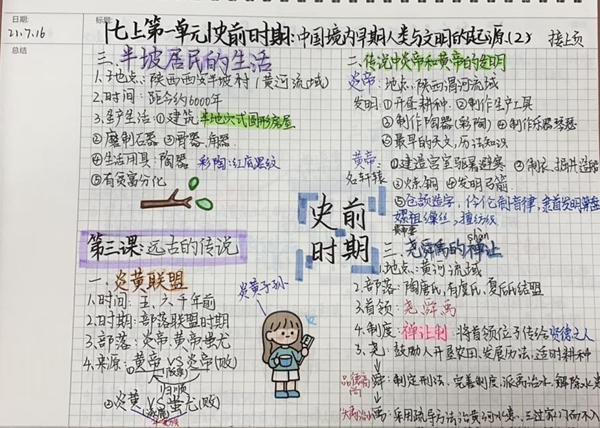 日期:
标题:
21.7.16
七上第一单元|史前时期:中国境内早期人类与文明的起源.(2) 接上页
三.半坡居民的生活
1.地点:陕西西安半坡村(黄河流域)
2.时间:距今约6000年
3.生产生活:①建筑 半地穴式圆形房屋
②磨制石器 ③骨器、角器
④生活用具:陶器 彩陶:红底黑纹
⑤有贫富分化
第三课:远古的传说
一.炎黄联盟
1.时间:五、六千年前
2.时期:部落联盟时期
3.部落:炎帝黄帝蚩尤
4.来源:黄帝VS炎帝(败)
归顺
②炎黄VS蚩尤(败)
史前
时期
炎黄子孙
二.传说中炎帝和黄帝的发明
炎帝:地点:陕西渭河流域
发明:①开垦耕种.②制作生产工具
③制作陶器(彩陶)④制作乐器琴瑟
⑤最早的天文,历法知识
黄帝:①建造宫室躲暑避寒 ②制衣、
名轩辕
③炼铜 ④发明弓箭
⑤仓颉造字,伶伦制音律,隶首发明算盘
嫘祖缫丝,
shàn
三、尧舜禹的禅让
1.地点:黄河流域
2.部落:陶唐氏,有虞氏,夏后氏结盟
3.首领:尧舜禹
4.制度:禅让制 将首领位子传给贤德之人
5.尧:鼓励人开垦农田,发展历法,适时耕种
舜:制定刑法,完善制度,派禹治水,解除水
禹:采用疏导方法治黄河水患,三过家门而不入